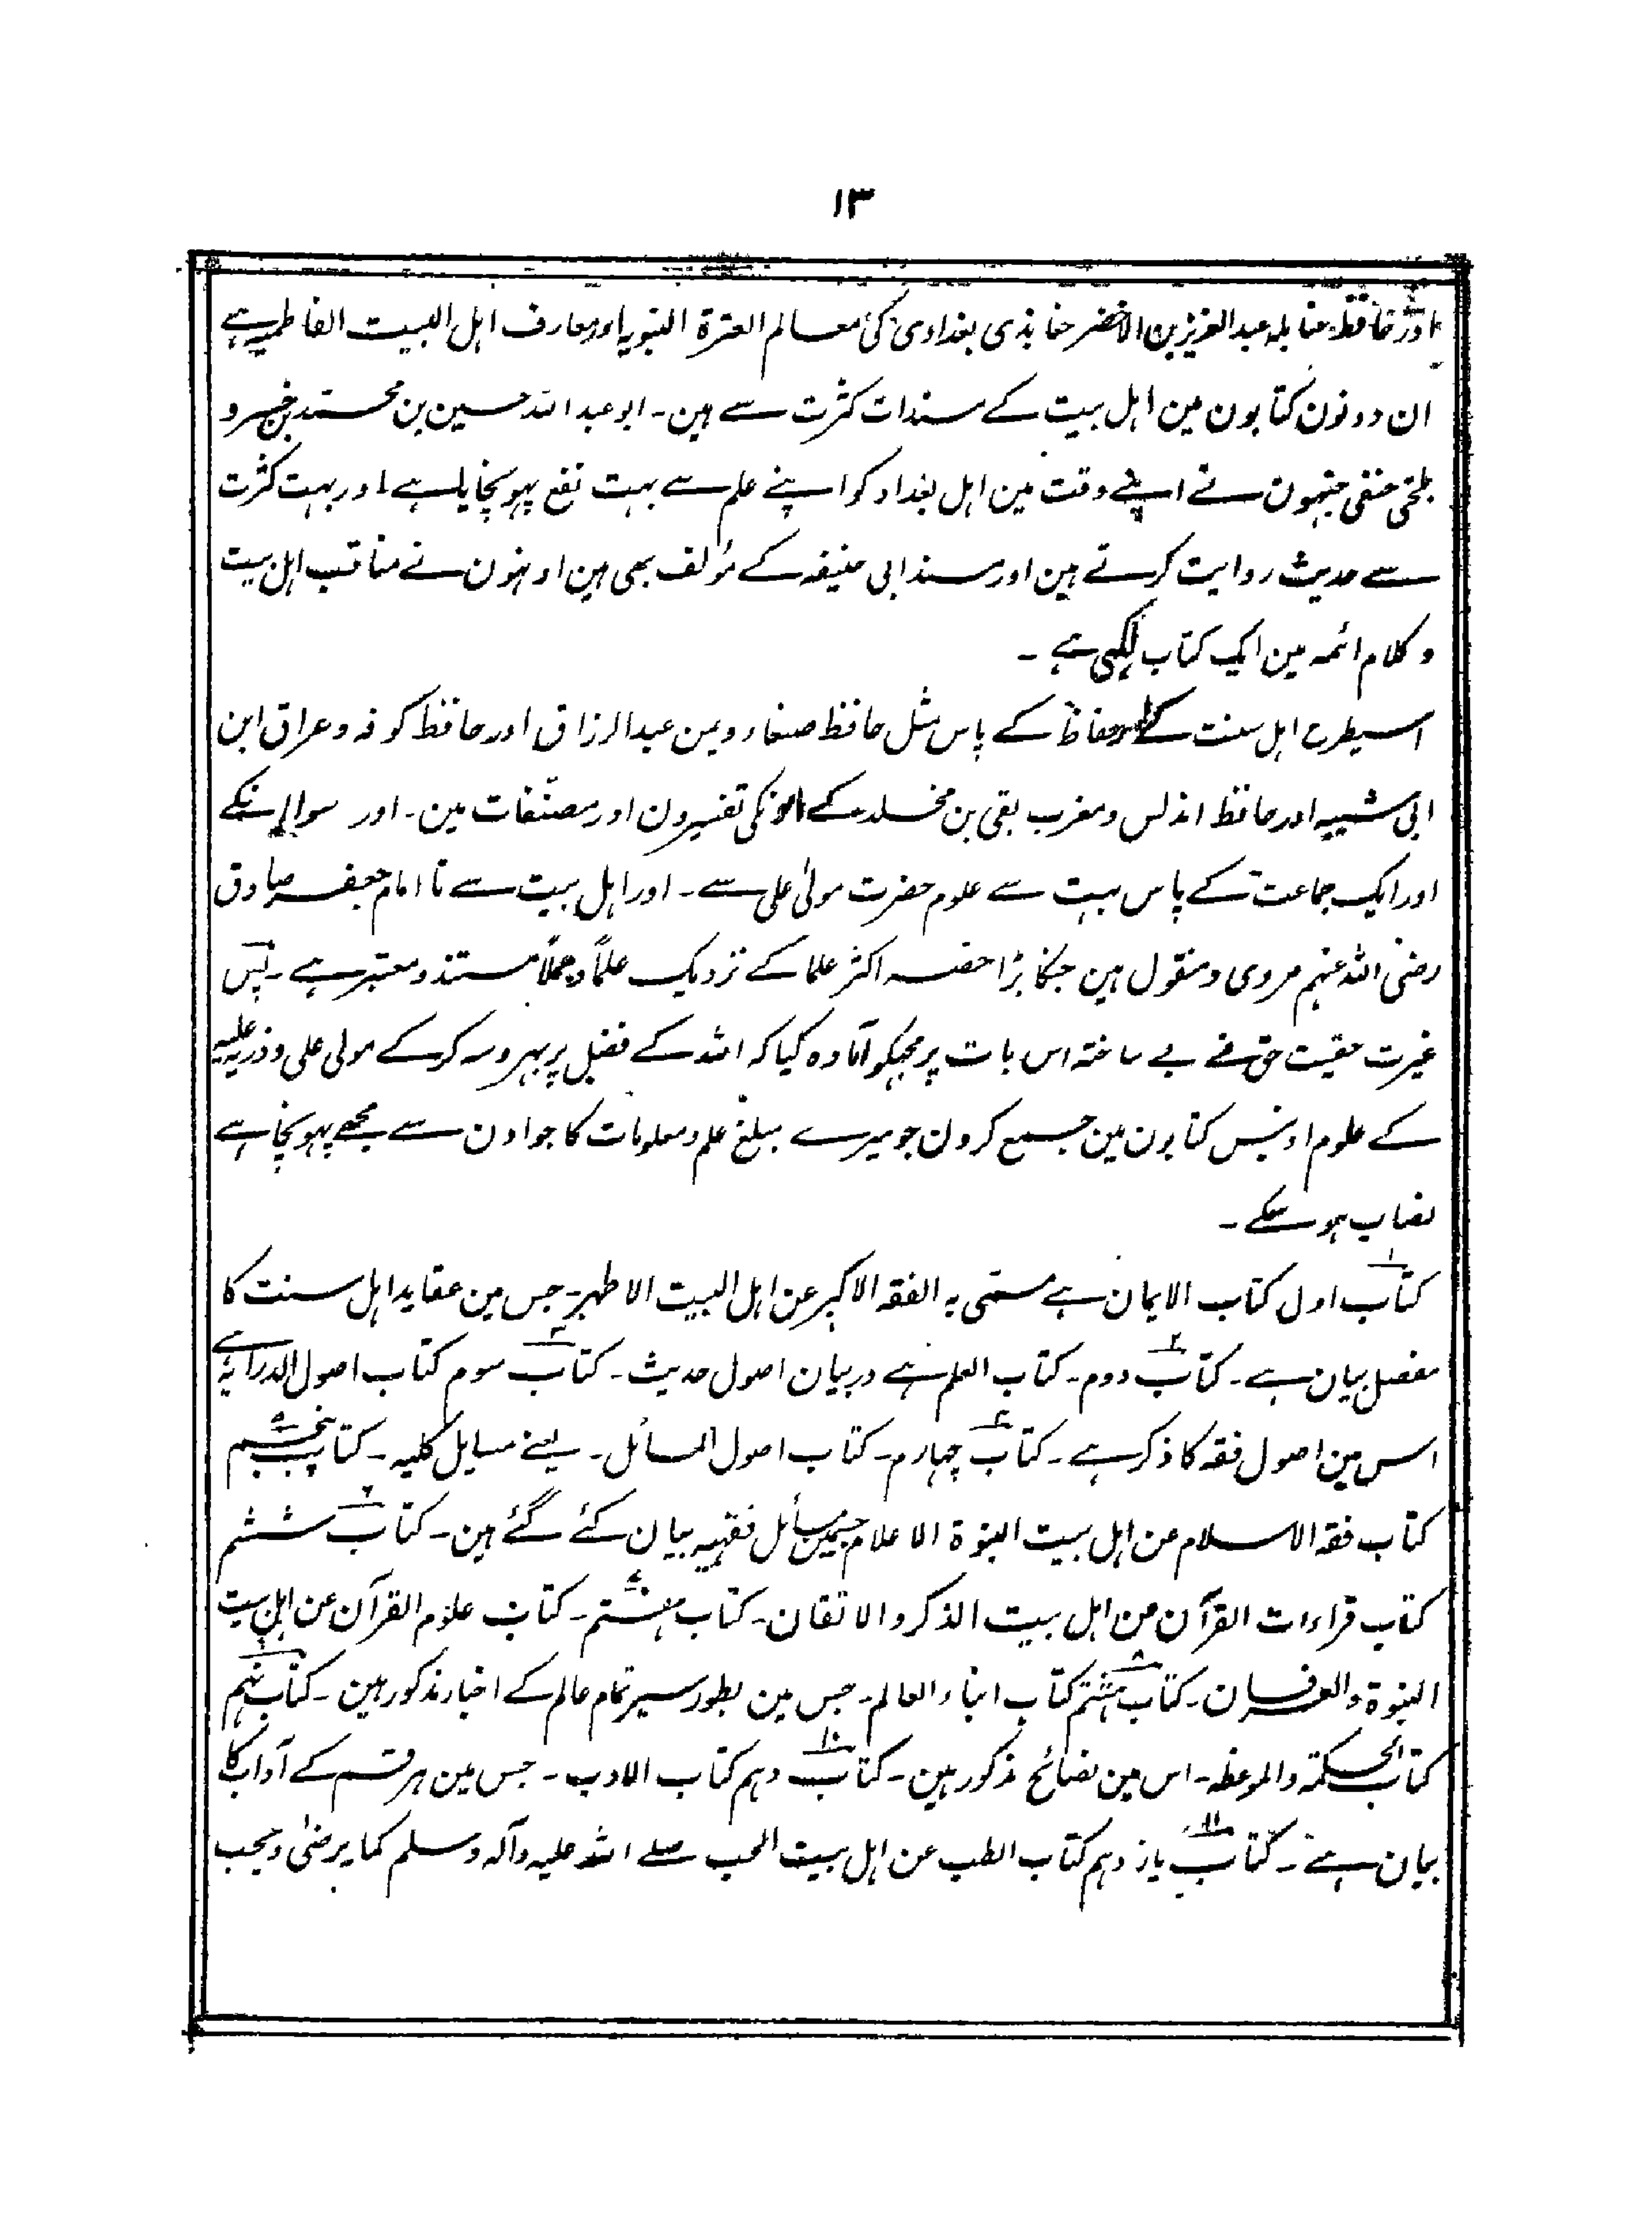 ۱۳
اور حافظ حنابلہ عبدالعزیز بن الاخضر جنابذی بغدادی کی معالم العترۃ النبویہ اور معارف اہل البیت الفاطمیہ ہے
ان دونون کتابون مین اہل بیت کے مسندات کثرت سے ہین۔ ابو عبد اللہ حسین بن محمد بن خسرو
بلخی حنفی جنہون نے اپنے وقت مین اہل بغداد کو اپنے علم سے بہت نفع پہونچایا ہے اور بہت کثرت
سے حدیث روایت کرتے ہین اور مسند ابی حنیفہ کے مؤلف بھی ہین اونہون نے مناقب اہل بیت
و کلام ائمہ مین ایک کتاب لکھی ہے ۔
اسیطرح اہل سنت کے حفاظ کے پاس مثل حافظ صنعاء و یمن عبدالرزاق اور حافظ کوفہ و عراق ابن
ابی شیبہ اور حافظ اندلس و مغرب بقی بن مخلد کے اونکی تفسیرون اور مصنفات مین۔ اور سوا اِنکے
اور ایک جماعت کے پاس بہت سے علوم حضرت مولیٰ علی سے ۔ اور اہل بیت سے تا امام جعفر صادق
رضی اللہ عنہم مروی و منقول ہین جنکا بڑا حصہ اکثر علما کے نزدیک علماً و عملاً مستند و معتبر ہے ۔ پس
غیرت حقیت حق نے بے ساختہ اس بات پر مجہکو آمادہ کیا کہ اللہ کے فضل پر بہروسہ کرکے مولی علی و ذریہ علیہ
کے علوم اونیس کتابون مین جمع کرون جو میرے مبلغ علم و معلومات کا جو اون سے مجھے پہونچا ہے
نصاب ہو سکے ۔
کتاب ۱ اول کتاب الایمان ہے مسمّی بہ الفقہ الاکبر عن اہل البیت الاطہر۔ جس مین عقاید اہل سنت کا
مفصل بیان ہے ۔ کتاب ۲ دوم ۔ کتاب العلم ہے در بیان اصول حدیث ۔ کتاب ۳ سوم کتاب اصول الدرایۃ ہے
اس مین اصول فقہ کا ذکر ہے ۔ کتاب ۴ چہارم ۔ کتاب اصول المسائل ۔ یعنے مسایل کلیہ ۔ کتاب ۵ پنجم
کتاب فقہ الاسلام عن اہل بیت النبوۃ الاعلام جسمین مسائل فقہیہ بیان کئے گئے ہین ۔ کتاب ۶ ششم
کتاب قراءات القرآن عن اہل بیت الذکر والاتقان۔ کتاب ۷ ہفتم ۔ کتاب علوم القرآن عن اہل بیت
النبوۃ والعرفان ۔ کتاب ۸ ہشتم کتاب انباء العالم ۔ جس مین بطور سیر تمام عالم کے اخبار مذکور ہین ۔ کتاب ۹ نہم
کتاب الحکمۃ والموعظہ ۔ اس مین نصائح مذکور ہین ۔ کتاب ۱۰ دہم کتاب الادب ۔ جس مین ہر قسم کے آداب کا
بیان ہے ۔ کتاب ۱۱ یازدہم کتاب الطب عن اہل بیت الحب صلے اللہ علیہ وآلہ وسلم کما یرضیٰ ویحب